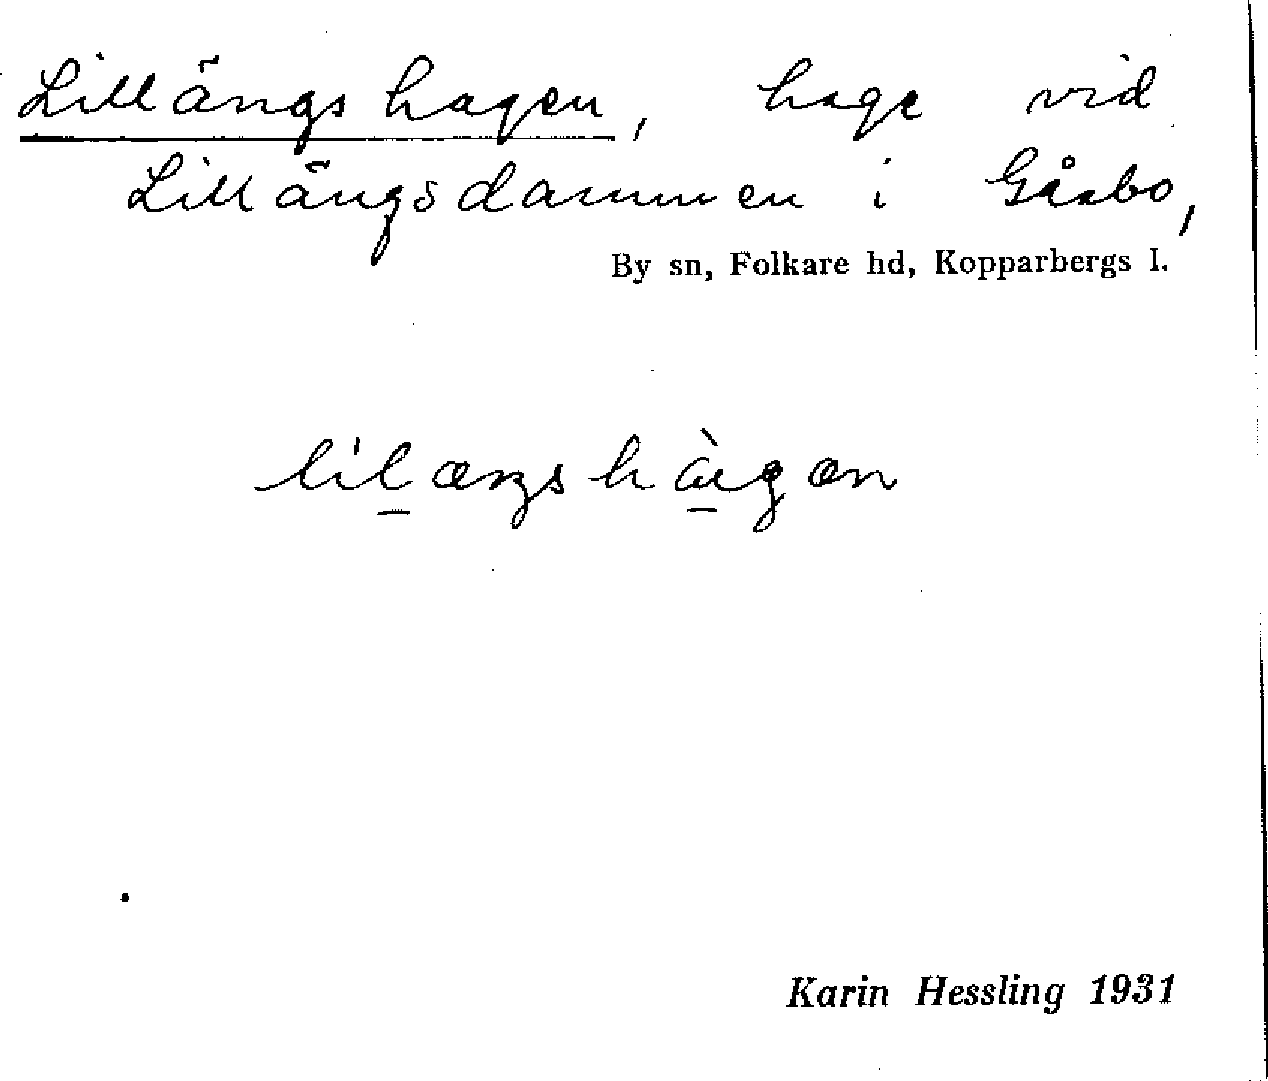 Lillängshagen, hage vid
Lillängsdammen i Gåsbo,
By sn, Folkare hd, Kopparbergs l.
lilæŋshàgæn
Karin Hessling 1931